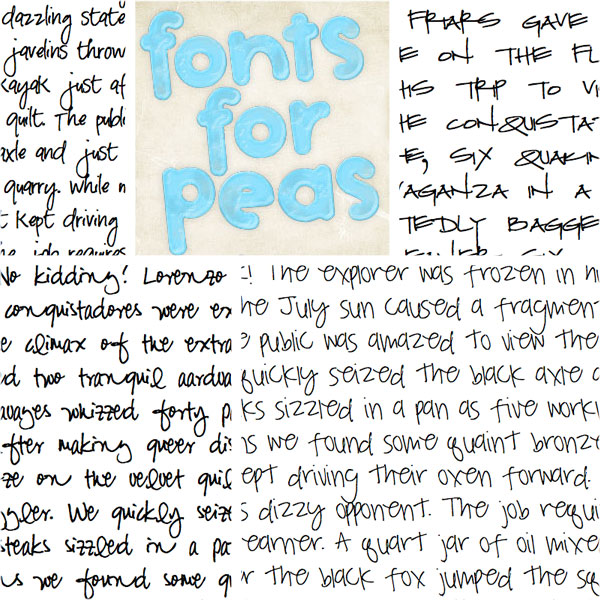 dazzling state
javelins throw
kayak just af
quilt. The publi
axle and just
quarry. While
t kept driving
the job requires
fonts
for
peas
FRIARS GAVE
E ON THE FL
HIS TRIP TO VI
HE CONQUISTA
E, SIX QUAKIN
AGANZA IN A
TEDLY BAGGE
No kidding! Lorenzo
conquistadores were ex
e climax of the extra
d two tranquil aardva
wages whizzed forty p
After making queer di
ze on the velvet quil
ggler. We quickly seiz
steaks sizzled in a pa
us we found some q
! The explorer was frozen in hi
he July sun caused a fragmen
public was amazed to view the
quickly seized the black axle a
ks sizzled in a pan as five worki
s we found some quaint bronze
ept driving their oxen forward.
s dizzy opponent. The job requi
earner. A quart jar of oil mixe
r the black fox jumped the sq